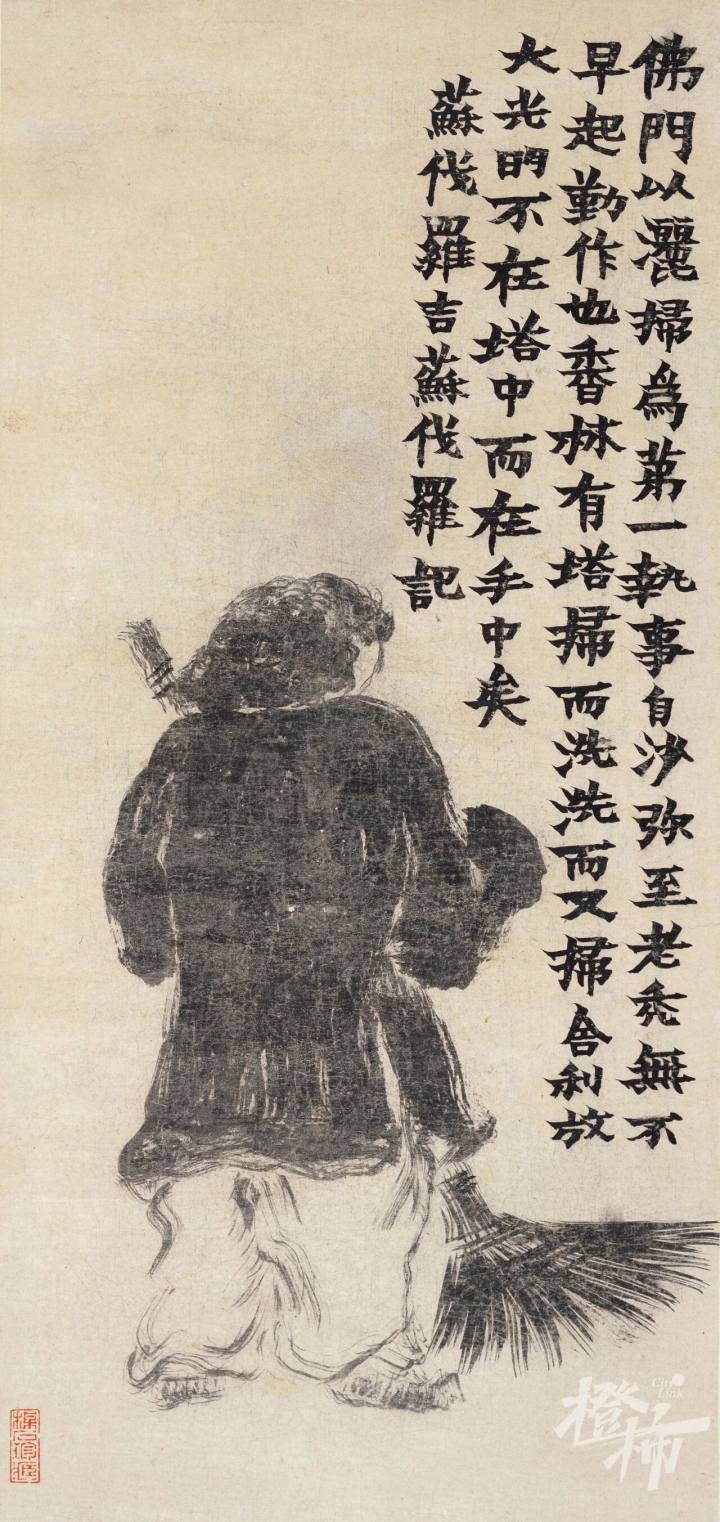 佛門以灑掃為第一執事自沙弥至老禿無不
早起勤作也香林有塔掃而洗洗而又掃舍利放
大光明不在塔中而在手中矣
蘇伐羅吉蘇伐羅記
橙柿
City Link